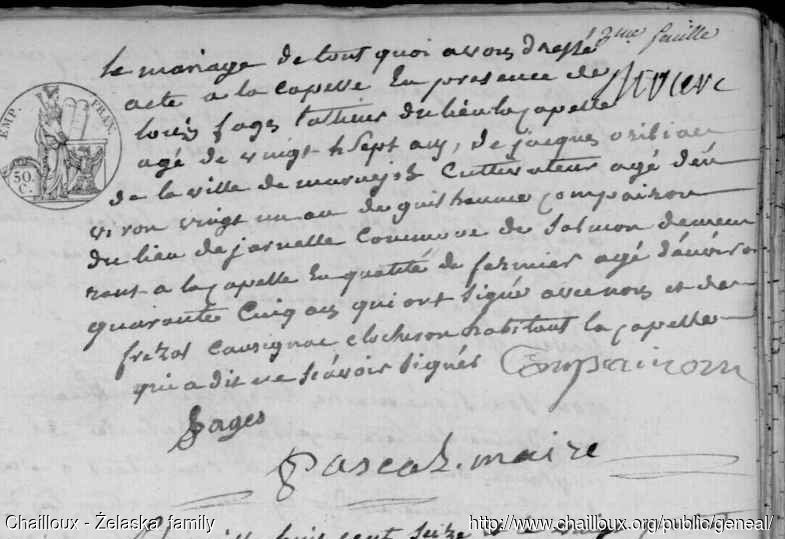 2me feuille
le mariage de tout quoi avons dressé
acte a la Capelle En presence de
louis fages tallieur du lieu lacapelle
agé de vingt h Sept ans, de jacques
de la ville de maruejols Cultivateur agé d'en
viron vingt un an de guilheaume Compairon
du lieu de jarnelle Commune de Salmon demeu
rant a lacapelle En qualité de fermier agé d'enviro
quarante Cinq ans qui ont Signé avec nous et de
frezal Causignac Clocheron habitant la capelle
qui a dit ne Scavoir Signés Compairon
fages
Pascal. maire
huit cent Seize
EMP. FRAN.
50 C.
Chailloux - Żelaska family
http://www.chailloux.org/public/geneal/